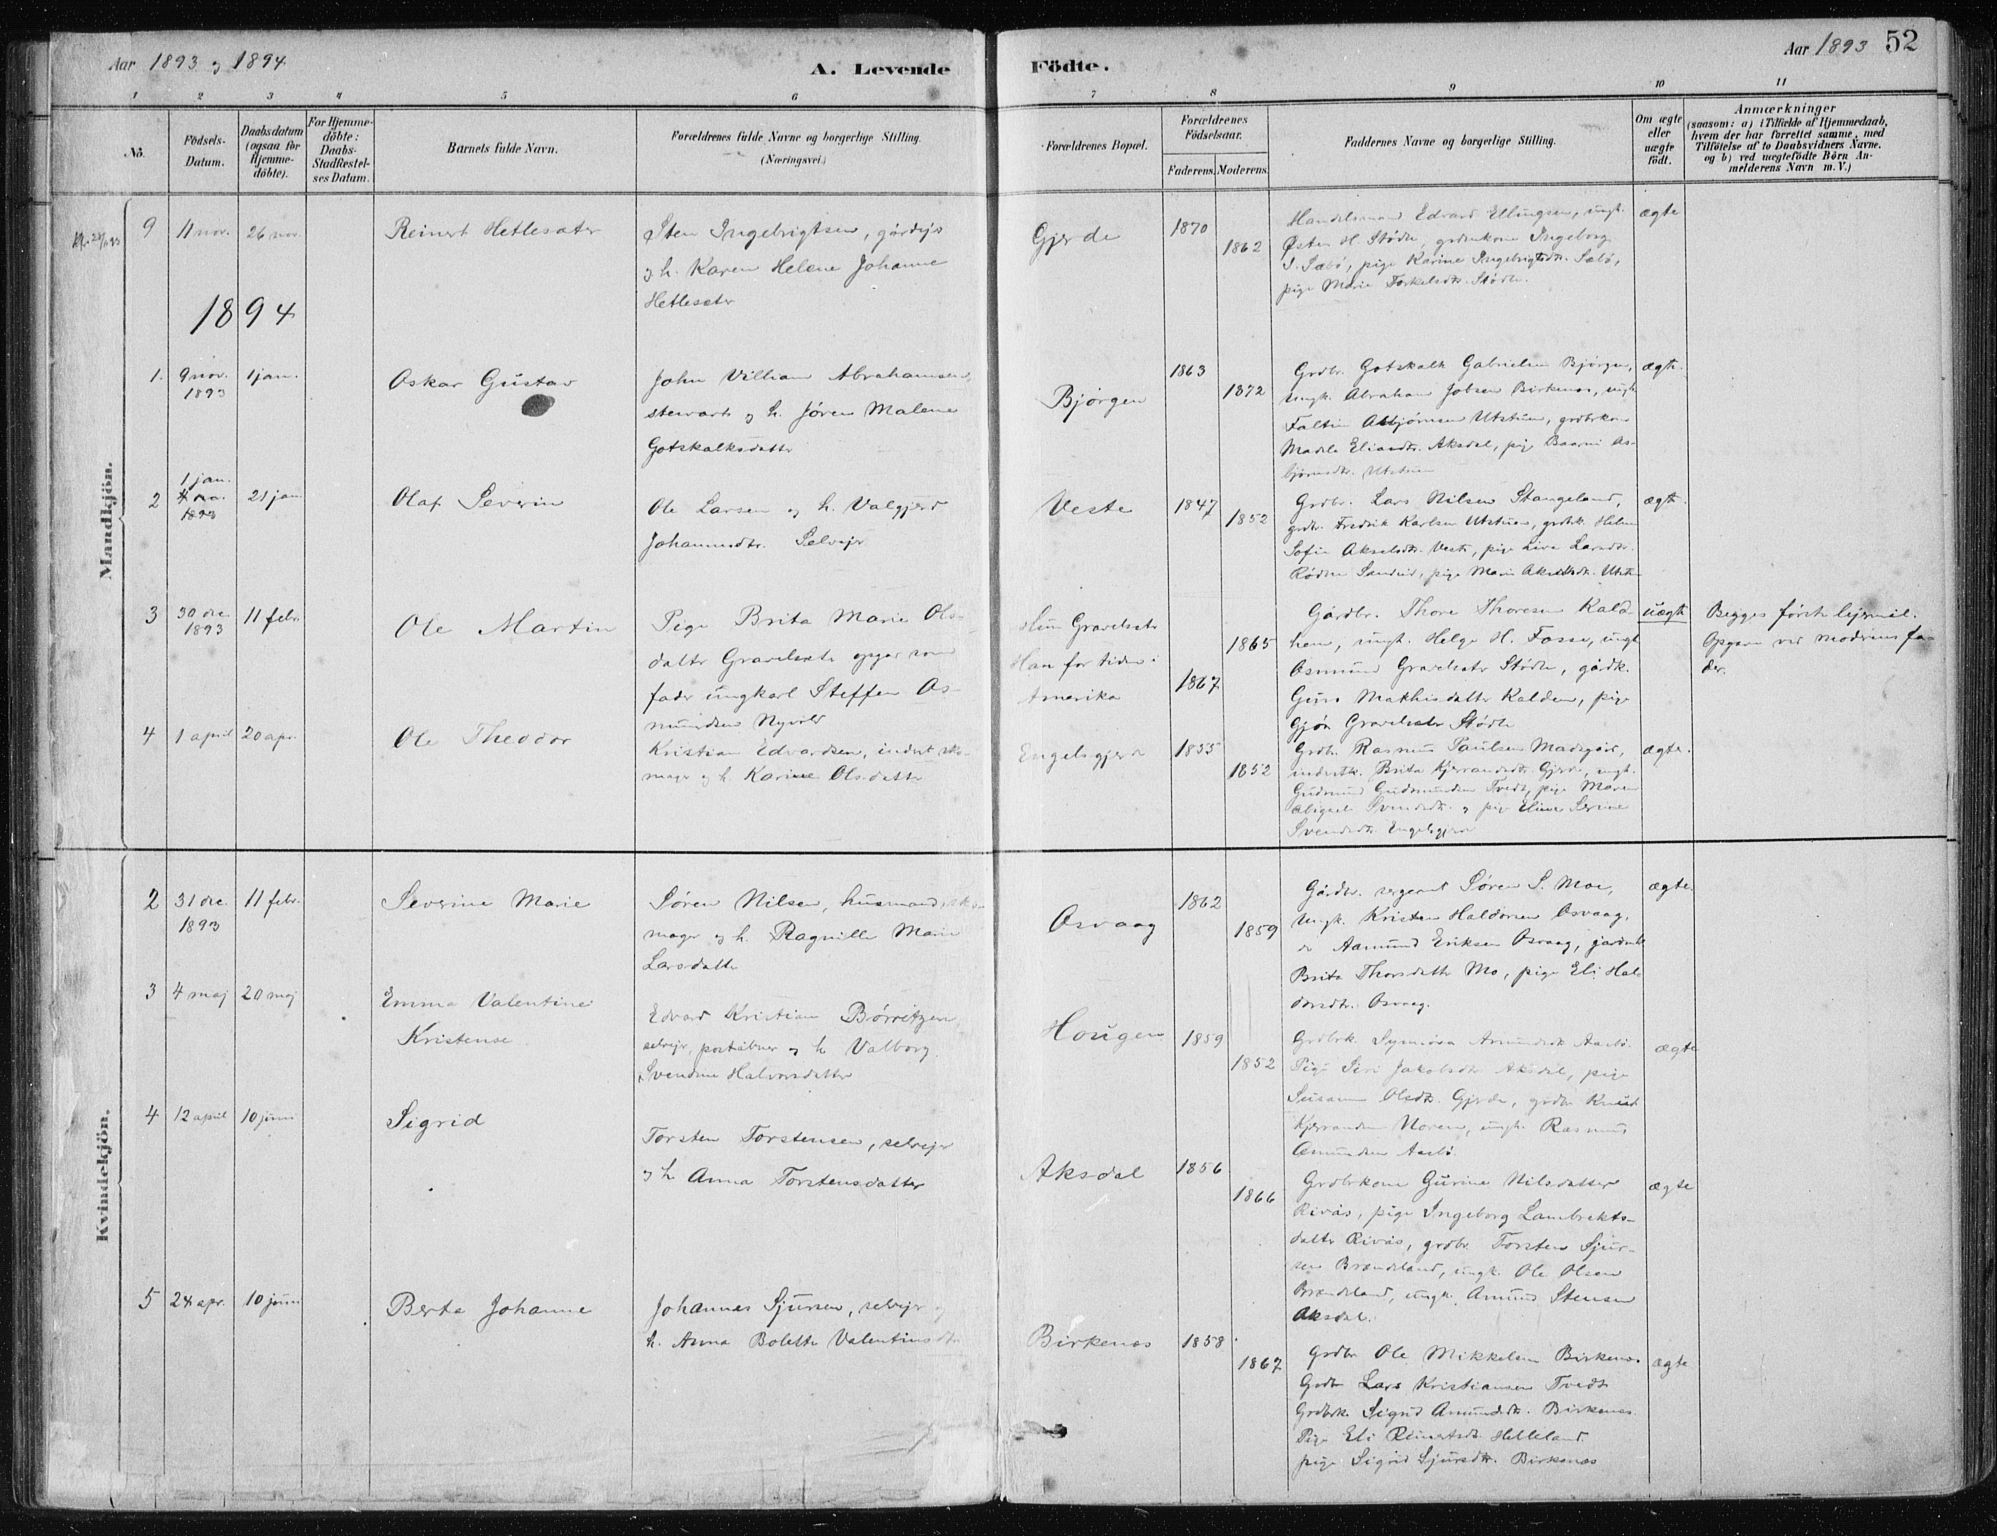 Aar 1893 og 1894
A. Levende
Födte.
Aar 1893 52
1 2 3 4 5 6 7 8 9 10 11
No.
Födsels-
Datum.
Daabsdatum
(ogsaa for
Hjemme-
döbte).
For Hjemme-
döbte:
Daabs-
Stadfæstel-
ses Datum.
Barnets fulde Navn.
Forældrenes fulde Navne og borgerlige Stilling.
(Næringsvei.)
Forældrenes Bopæl.
Forældrenes
Födselsaar.
Faderens. Moderens.
Faddernes Navne og borgerlige Stilling.
Om ægte
eller
uægte
födt.
Anmærkninger
(saasom: a) i Tilfælde af Hjemmedaab,
hvem der har forrettet samme, med
Tilföielse af to Daabsvidners Navne.
og b) ved uægtefödte Börn An-
melderens Navn m. V.)
Mandkjön.
9 11 nov. 26 nov. Reinert Hetlesæter
Sten Ingebrigtsen, gårdejer
og h. Karen Helene Johanne
Hetlesæter
Gjerde 1870 1862
Handelsmand Edvard Ellingsen, ungk.
Østen H. Stödle, grdmkone Ingeborg
S. Sæbö, pige Karine Ingebrigtsdtr. Sæbö,
pige Marie Torkelsdtr. Stödle.
ægte
1894
1. 9 nov. 1893 1 jan. Oskar Gustav
John Vilham Abrahamsen,
stewart og h. Jören Malene
Gotskalksdatter
Bjørgen 1863 1872
Grdbr. Gotskalk Gabrielsen Bjørgen,
ungk. Abraham Jobsen Birkenes, ungk.
Faltin Asbjørnsen Utstuen, grdbrkone
Madele Eliasdtr. Aksdal, pige As-
bjørnsdtr. Utstuen
ægte.
2 1 jan. 1893 21 jan. Olaf Severin
Ole Larsen og h. Valgjerd
Johannesdtr. Selvejer
Veste 1847 1852
Grdbr. Lars Nilsen Stangeland,
grdbr. Fredrik Karlsen Utstuen, grdbk. Helene
Sofie Akselsdtr. Veste, pige Live Larsdtr.
pige Marie Akselsdtr. Utstuen
ægte.
3 30 dec. 1893 11 febr. Ole Martin
Pige Brita Marie Ols-
datter Gravelsæter opgav som
fader ungkarl Steffen As-
mundsen Nyvold
Hun Gravelsæter
Han for tiden i
Amerika
1865 1867
Gårdbr. Thore Thoresen Kald-
hem, ungk. Helge H. Fosse, ungk.
Osmund Gravelsæter Stödle, gårdk.
Guro Mathisdatter Kaldem, pige
Gjöa Gravelsæter Stödle
uægte
Begges förste lejermål.
Opgave ved moderens fa-
der.
4 1 april 20 apr. Ole Theodor
Kristian Edvardsen, inderst, sko-
mager og h. Karine Olsdatter
Engelsgjerd 1855 1852
Grdbr. Rasmus Paulsen Madsgård,
inderstk. Brita Kjerrandsdtr. Gjerde, ungk.
Gudmund Gudmundsen Tvedt, pige Maren
Abigael Svendsdtr. og pige Eline Serine
Svendsdtr. Engelsgjerd
ægte.
Kvindekjön.
2 31 dec. 1893 11 febr. Severine Marie
Sören Nilsen, husmand, sko-
mager og h. Ragnille Marie
Larsdatter
Osvaag 1862 1859
Gårdbr. sergeant Sören S. Moe,
Ungk. Kristen Haldorsen Osvaag,
Aamund Eriksen Osvaag, gårdmk.
Brita Thorsdatter Mo, pige Eli Hal-
dorsdtr. Osvaag.
ægte.
3 4 maj 20 maj Emma Valentine
Kristense
Edvard Kristian Börretzen
selvejer, postaabner og h. Valborg
Svendine Halvorsdatter
Hougen 1859 1852
Grdbrk. Synneva Amundsdtr. Aarbö.
Pige Siri Jakobsdtr. Aksdal, pige
Susanne Olsdtr. Gjerde, grdbr. Knud
Kjerrandsen Noren, ungk. Rasmus
Amundsen Aarbö.
ægte
4 12 april 10 juni Sigrid
Torsten Torstensen, selvejer
og h. Anna Torstensdatter
Aksdal 1856 1866
Grdbrkone Gurine Nilsdatter
Rivås, pige Ingeborg Lambrekts-
datter Rivås, grdbr. Torsten Sjur-
sen Brandeland, ungk. Ole Olsen
Brandeland, ungk. Amund Stensen
Aksdal.
ægte
5 24 apr. 10 juni Berta Johanne
Johannes Sjursen, selvejer og
h. Anna Bolette Valentinsdtr.
Birkenes 1858 1867
Grdbr Ole Mikkelsen Birkenes.
Grdbr Lars Kristiansen Tvedt
Grdbrk. Sigrid Amundsdtr. Birkenes.
Pige Eli Reinertsdtr. Hetleland.
pige Sigrid Sjursdtr. Birkenes
ægte